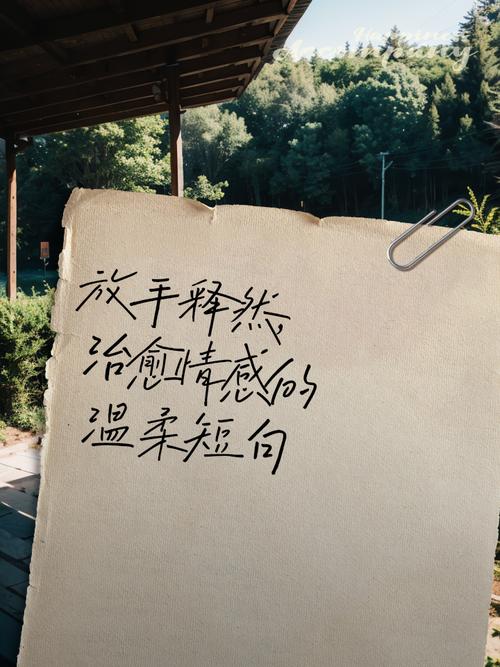 Happiness
放手释然
治愈情感的
温柔短句